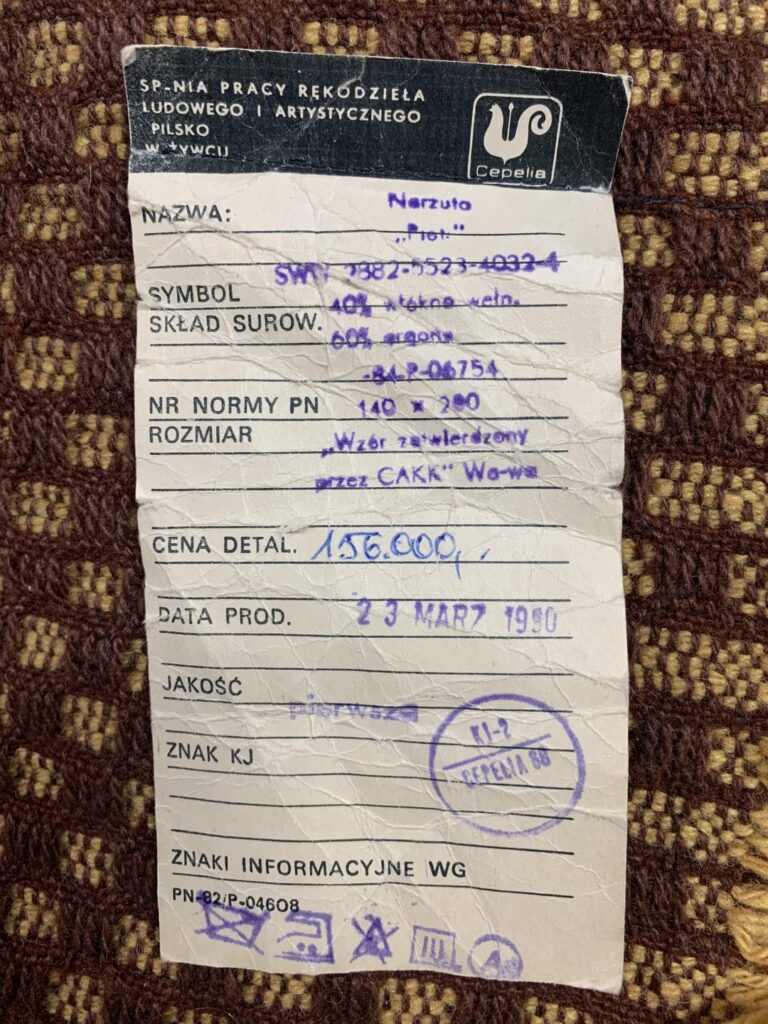 SP-NIA PRACY RĘKODZIEŁA
LUDOWEGO I ARTYSTYCZNEGO
PILSKO
W ŻYWCU
Cepelia
NAZWA: Narzuta
„Piotr"
SYMBOL SWW 2882-5523-4032-4
SKŁAD SUROW. 40% włókno wełn.
60% argona
-84-P-06754
NR NORMY PN
ROZMIAR 140 x 200
„Wzór zatwierdzony
przez CAKK" Wa-wa
CENA DETAL. 156.000,
DATA PROD. 23 MARZ 1990
JAKOŚĆ pierwsza
K1-2
CEPELIA
ZNAK KJ
ZNAKI INFORMACYJNE WG
PN-82/P-04608